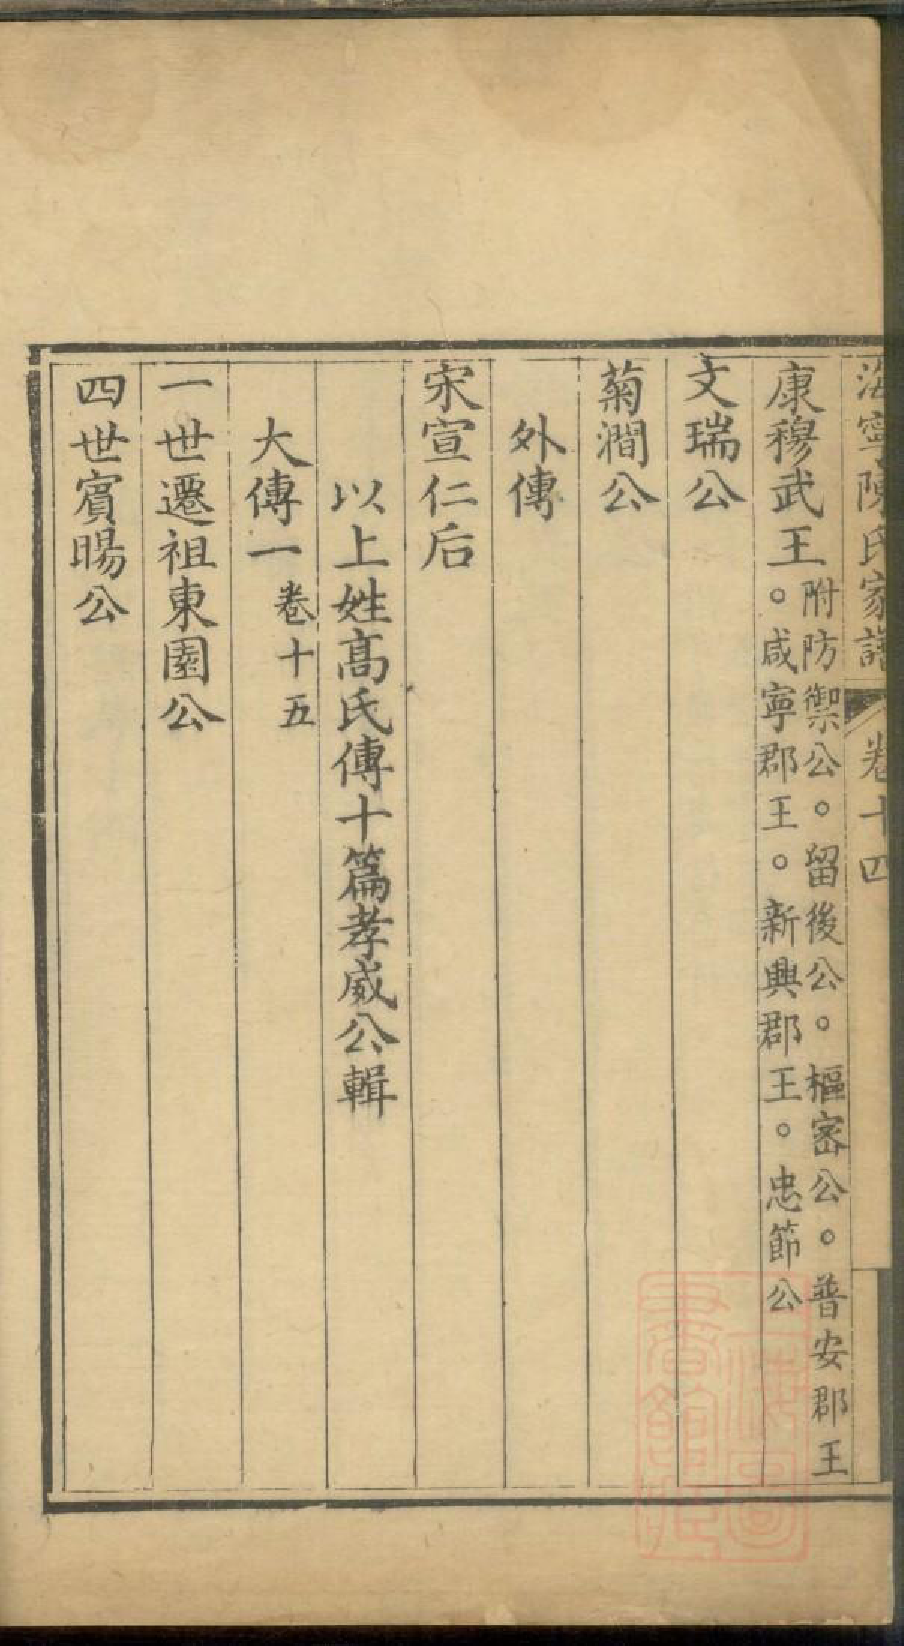 海寧陳氏家譜 卷十四
康穆武王 附防禦公。留後公。樞密公。普安郡王
。咸寧郡王。新興郡王。忠節公
文瑞公
菊澗公
外傳
宋宣仁后
以上姓高氏傳十篇孝威公輯
大傳一 卷十五
一世遷祖東園公
四世賓暘公